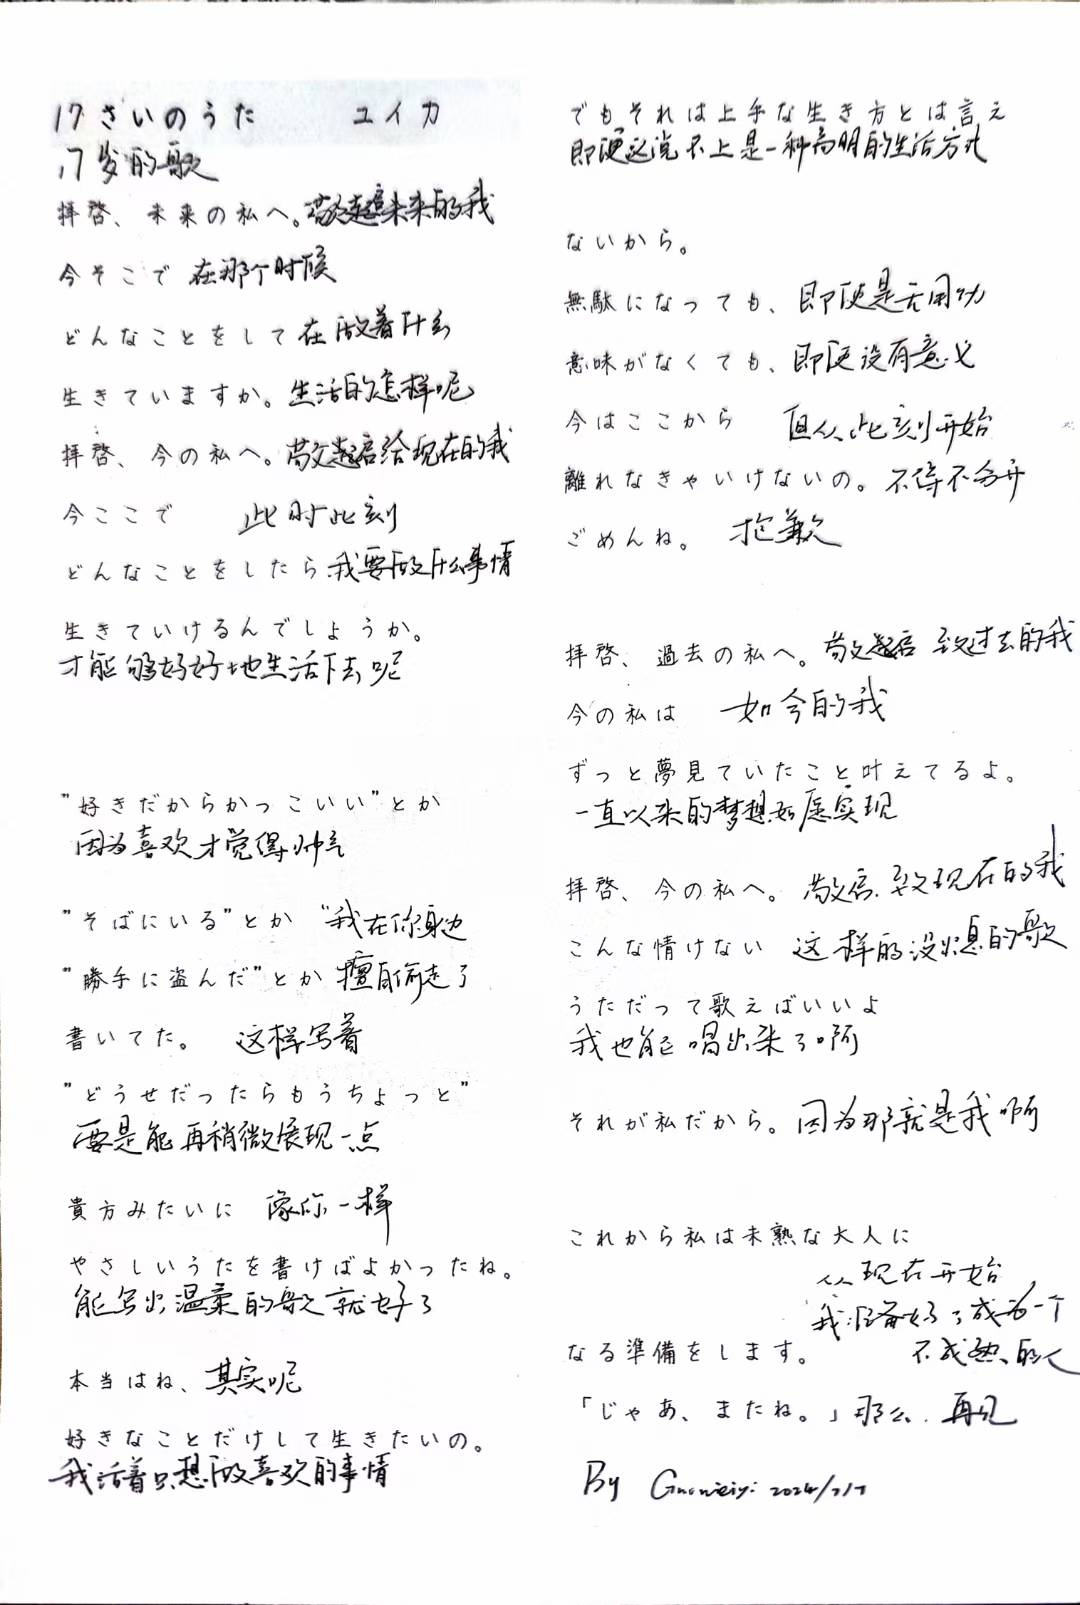 17さいのうた ユイカ
17岁的歌
拝啓、未来の私へ。敬启未来的我
今そこで 在那个时候
どんなことをして 在做着什么
生きていますか。生活的怎样呢
拝啓、今の私へ。敬启给现在的我
今ここで 此时此刻
どんなことをしたら 我要做什么事情
生きていけるんでしょうか。
才能够好好地生活下去呢
"好きだからかっこいい"とか
因为喜欢才觉得帅气
"そばにいる"とか "我在你身边
"勝手に盗んだ"とか 擅自偷走了
書いてた。 这样写着
"どうせだったらもうちょっと"
要是能再稍微展现一点
貴方みたいに 像你一样
やさしいうたを書けばよかったね。
能写出温柔的歌就好了
本当はね、其实呢
好きなことだけして生きたいの。
我活着只想做喜欢的事情
でもそれは上手な生き方とは言え
即便这说不上是一种高明的生活方式
ないから。
無駄になっても、即使是无用功
意味がなくても、即便没有意义
今はここから 但从此刻开始
離れなきゃいけないの。不得不分开
ごめんね。 抱歉
拝啓、過去の私へ。敬启 致过去的我
今の私は 如今的我
ずっと夢見ていたこと叶えてるよ。
一直以来的梦想如愿实现
拝啓、今の私へ。敬启.致现在的我
こんな情けない 这样的没出息的歌
うただって歌えばいいよ
我也能唱出来了啊
それが私だから。因为那就是我啊
これから私は未熟な大人に
从现在开始
我准备好了成为一个
なる準備をします。 不成熟的人
「じゃあ、またね。」那么.再见
By 2024/7/7